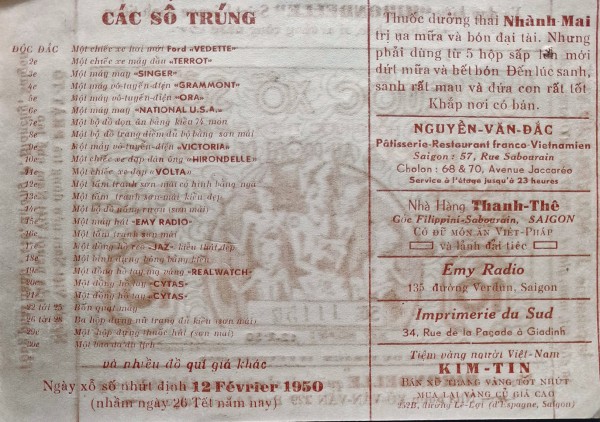 CÁC SỐ TRÚNG
ĐỘC ĐẮC Một chiếc xe hơi mới Ford «VEDETTE»
2e Một chiếc xe máy dầu «TERROT»
3e Một máy may «SINGER»
4e Một máy vô-tuyến-điện «GRAMMONT
5e Một máy vô-tuyến-điện «ORA»
6e Một máy may «NATIONAL U.S.A.»
7e Một bộ đồ dọn ăn bằng kiểu 74 món
8e Một bộ đồ trang điểm đủ bộ bằng sơn mài
9e Một máy vô-tuyến-điện «VICTORIA»
10e Một chiếc xe đạp đàn ông «HIRONDELLE»
11e Một chiếc xe đạp «VOLTA»
12e Một tấm tranh sơn mài có hình bằng ngà
13e Một tấm tranh sơn mài kiểu đẹp
14e Một bộ đồ uống rượu (sơn mài)
15e Một máy hát «EMY RADIO»
16e Một tấm tranh sơn mài
17e Một đồng hồ reo «JAZ» kiểu thật đẹp
18e Một bình đựng bông bằng kiểu
19e Một đồng hồ tay mạ vàng «REALWATCH»
20e Một đồng hồ tay «CYTAS»
21e Một đồng hồ tay «CYTAS»
22 tới 25 Bốn quạt máy
26 tới 28 Ba hộp đựng nữ trang đủ kiểu (sơn mài)
29e Một hộp đựng thuốc hút (sơn mài)
30e Một bao da du lịch
và nhiều đồ quí giá khác
Ngày xổ số nhứt định 12 Février 1950
(nhằm ngày 26 Tết năm nay)
Thuốc dưỡng thai Nhành-Mai
trị ụa mữa và bón đại tài. Nhưng
phải dùng từ 5 hộp sấp lên mới
dứt mữa và hết bón. Đến lúc sanh,
sanh rất mau và đứa con rất tốt
Khắp nơi có bán.
NGUYỄN-VĂN-ĐẮC
Pâtisserie-Restaurant franco-Vietnamien
Saigon : 57, Rue Sabourain
Cholon : 68 & 70, Avenue Jaccaréo
Service à l'étage jusqu'à 23 heures
Nhà Hàng Thanh-Thế
Góc Filippini-Sabourain, SAIGON
CÓ ĐỦ MÓN ĂN VIỆT-PHÁP
và lãnh đãi tiệc
Emy Radio
135 đường Verdun, Saigon
Imprimerie du Sud
34, Rue de la Pagode à Giadinh
Tiệm vàng người Việt-Nam
KIM-TÍN
BÁN XỨ THẮNG VÀNG TỐT NHỨT
MUA LẠI VÀNG CŨ GIÁ CAO
đường Lê-Lợi (d'Espagne, Saigon)